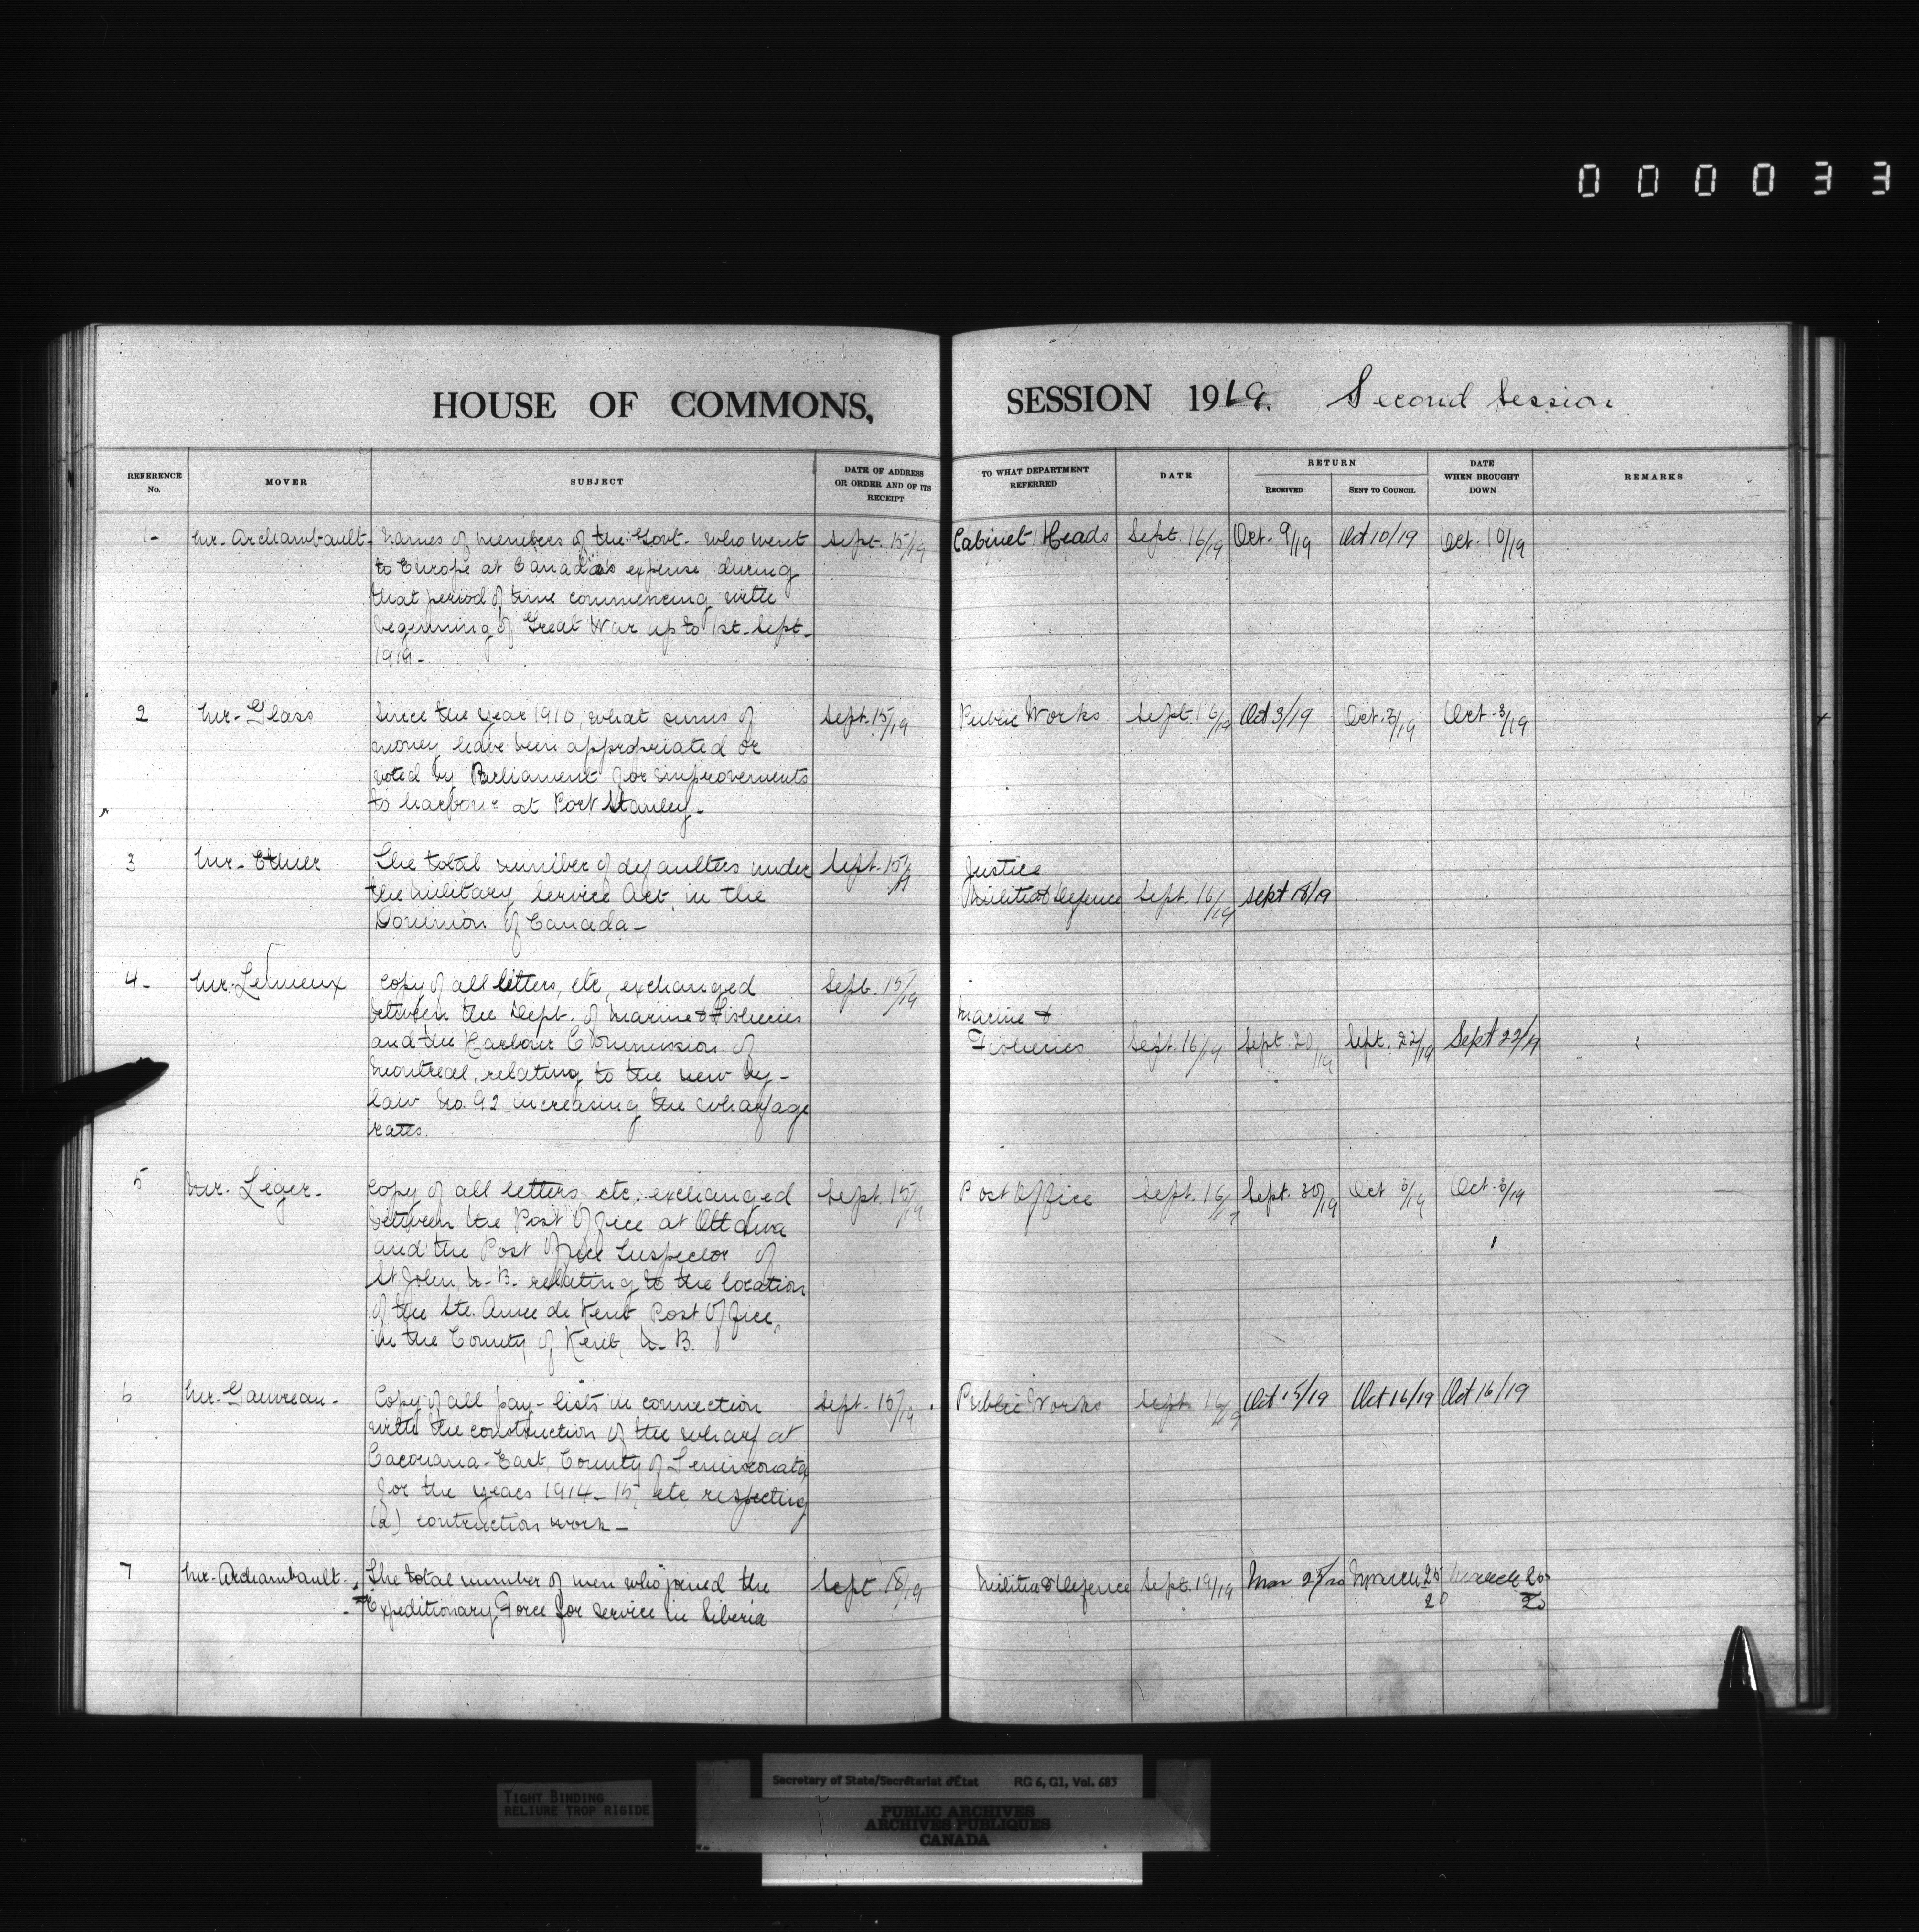 000033
HOUSE OF COMMONS, SESSION 1919. Second Session
REFERENCE No. MOVER SUBJECT DATE OF ADDRESS OR ORDER AND OF ITS RECEIPT TO WHAT DEPARTMENT REFERRED DATE RETURN RECEIVED SENT TO COUNCIL DATE WHEN BROUGHT DOWN REMARKS
1- Mr. Archambault- Names of members of the Govt. who went Sept. 15/19 Cabinet Heads Sept. 16/19 Oct. 9/19 Oct 10/19 Oct. 10/19
to Europe at Canada's expense during
that period of time commencing with
beginning of Great War up to 1st. Sept-
1919-
2 Mr- Glass Since the year 1910, what sums of Sept. 15/19 Public Works Sept. 16/19 Oct 3/19 Oct. 3/19 Oct. 3/19
money have been appropriated or
voted by Parliament for improvements
to harbour at Port Stanley-
3 Mr- Ethier The total number of defaulters under Sept. 15/19 Justice
the Military Service Act, in the Militia & Defence Sept. 16/19 Sept 18/19
Dominion of Canada-
4- Mr. Lemieux Copy of all letters, etc, exchanged Sept. 15/19
between the Dept. of Marine & Fisheries Marine &
and the Harbour Commission of Fisheries Sept. 16/19 Sept. 20/19 Sept. 22/19 Sept 22/19
Montreal, relating to the new by-
law No. 92 increasing the wharfage
rates.
5 Mr. Leger- Copy of all letters etc. exchanged Sept. 15/19 Post Office Sept. 16/19 Sept. 30/19 Oct 3/19 Oct. 3/19
between the Post Office at Ottawa
and the Post Office Inspector of
St John N.B. relating to the location
of the Ste. Anne de Kent Post Office,
in the County of Kent, N.B.
6 Mr. Gauvreau- Copy of all pay-lists in connection Sept. 15/19 Public Works Sept. 16/19 Oct 15/19 Oct 16/19 Oct 16/19
with the construction of the wharf at
Cacouana-East, County of Temiscouata
for the years 1914-15, etc respecting
(a) contruction work-
7 Mr. Archambault- The total number of men who joined the Sept 18/19 Militia & Defence Sept. 19/19 Mar 25/20 March 25 20 March 25 20
Expeditionary Force for service in Siberia
TIGHT BINDING
RELIURE TROP RIGIDE
Secretary of State/Secrétariat d'État RG 6, G1, Vol. 683
PUBLIC ARCHIVES
ARCHIVES PUBLIQUES
CANADA